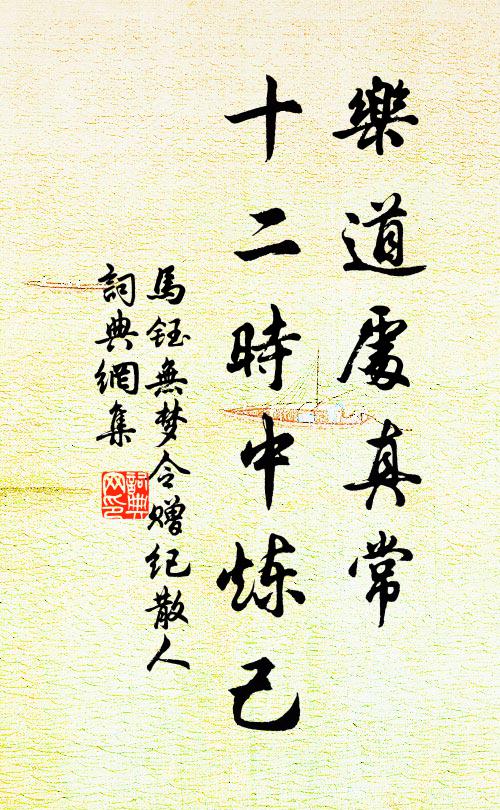 樂道處真常
十二時中炼己
馬鈺無梦令赠纪散人
詞典網集
詞典
网印